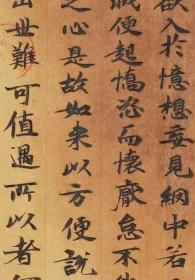 欲入於憶想妄見網中若
滅便起憍恣而懷厭怠不
之心是故如来以方便說
出世難可值遇所以者